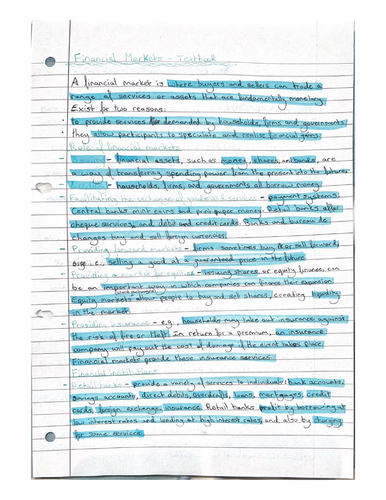 Financial Markets - Textbook
A financial market is where buyers and sellers can trade a
range of services or assets that are fundamentally monetary.
Exist for two reasons:
to provide services demanded by households, firms and governments
they allow participants to speculate and realise financial gains.
Role of financial markets
- financial assets, such as money, shares, and bonds, are
a way of transferring spending power from the present into the future.
- households, firms, and governments all borrow money.
- Facilitating the exchange of goods and services - payment systems
Central banks mint coins and print paper money. Retail banks offer
cheque services, and debit and credit cards. Banks and bureau de
changes buy and sell foreign currencies.
- Providing forward markets - firms sometimes buy or sell forward,
i.e., selling a good at a guaranteed price in the future
- Providing a market for equities - issuing shares, or equity finance, can
be an important way in which companies can finance their expansion.
Equity markets allow people to buy and sell shares, creating liquidity
in the market.
- Providing insurance - e.g., households may take out insurance against
the risk of fire or theft. In return for a premium, an insurance
company will pay out the cost of damage if the event takes place.
Financial markets provide these insurance services.
Financial institutions
- Retail banks - provide a variety of services to individual: bank accounts,
savings accounts, direct debits, overdrafts, loans, mortgages, credit
cards, foreign exchange, insurance. Retail banks profit by borrowing at
low interest rates and lending at high interest rates, and also by charging
for some services.